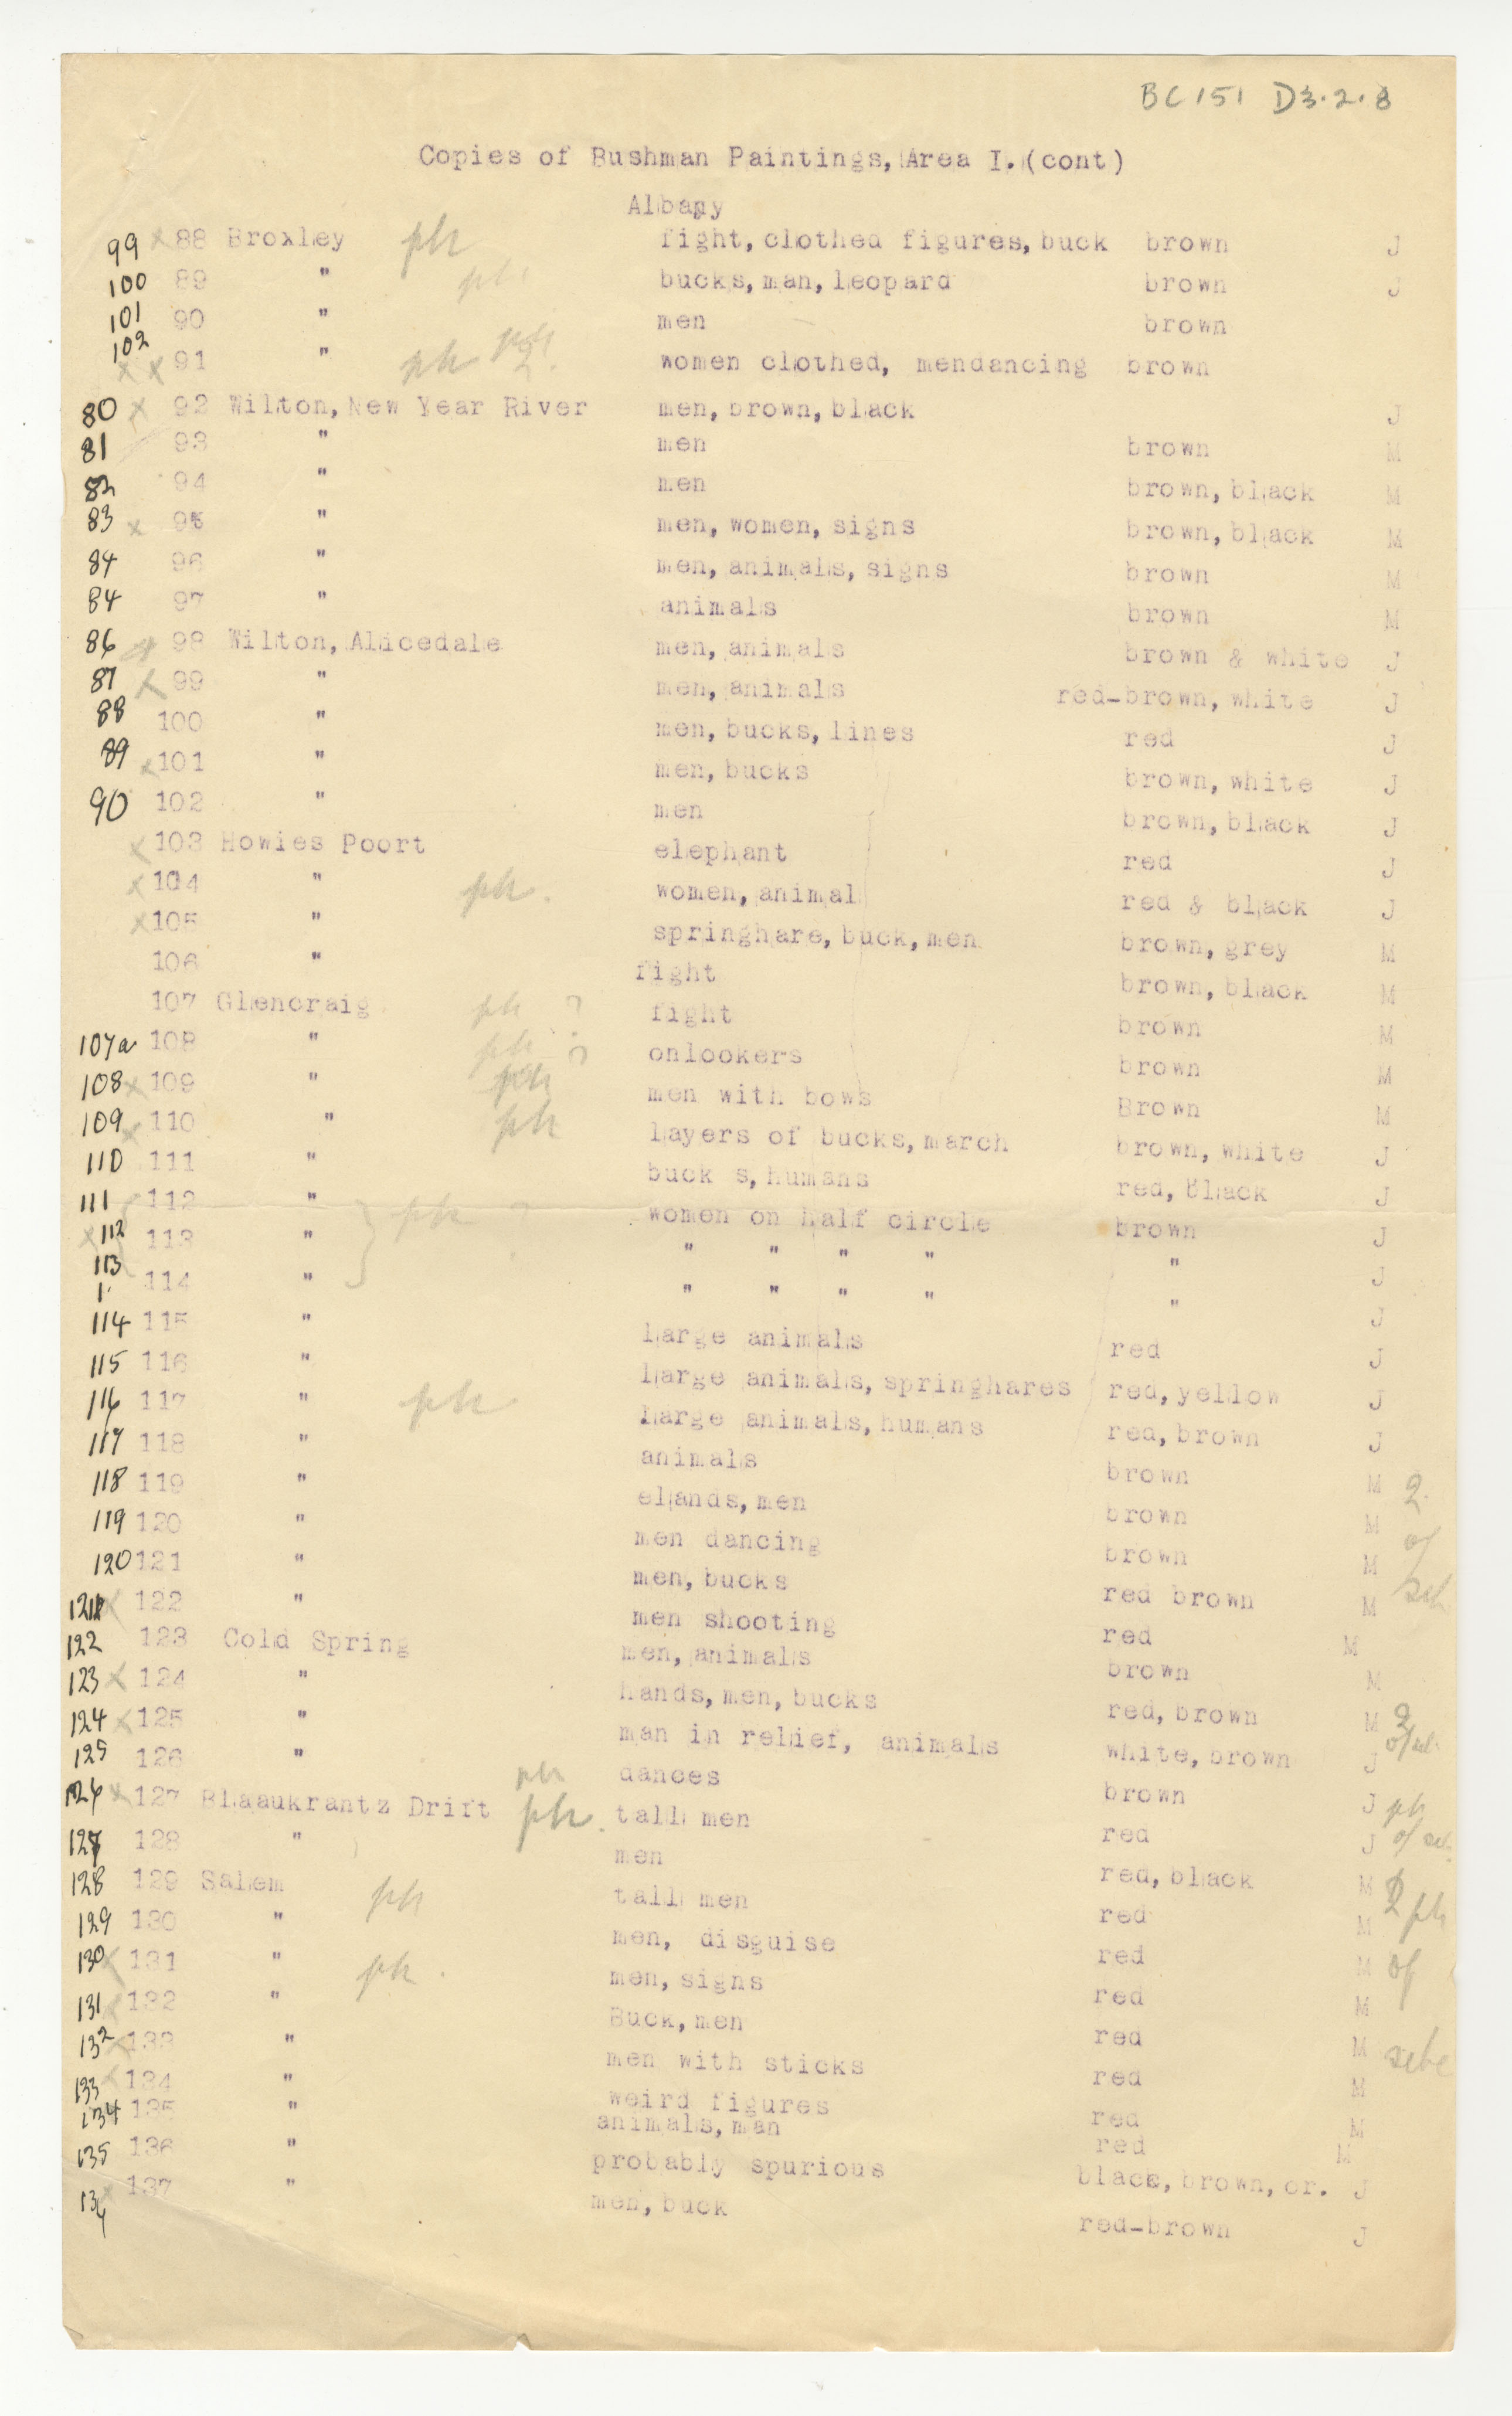 BC 151 D3.2.8
Copies of Bushman Paintings, Area I. (cont)
Albany
99 x 88 Broxley ph fight, clothed figures, buck brown J
100 89 " ph bucks, man, leopard brown J
101 90 " men brown
102 x x 91 " ph ph 2. women clothed, mendancing brown
80 x 92 Wilton, New Year River men, brown, black J
81 93 " men brown M
82 94 " men brown, black M
83 x 95 " men, women, signs brown, black M
84 96 " men, animals, signs brown M
84 97 " animals brown M
86 98 Wilton, Alicedale men, animals brown & white J
87 x 99 " men, animals red-brown, white J
88 100 " men, bucks, lines red J
89 x 101 " men, bucks brown, white J
90 102 " men brown, black J
x 103 Howies Poort elephant red J
x 104 " ph. women, animal red & black J
x 105 " springhare, buck, men brown, grey M
106 " fight brown, black M
107 Glencraig ph ? fight brown M
107a 108 " ph ? onlookers brown M
108 x 109 " ph men with bows Brown M
109 x 110 " ph layers of bucks, march brown, white J
110 111 " buck s, humans red, Black J
111 112 " ph ? women on half circle brown J
x 112 113 " " " " " " J
113 114 " " " " " " J
114 115 " large animals red J
115 116 " large animals, springhares red, yellow J
116 117 " ph large animals, humans red, brown J
117 118 " animals brown M 2.
118 119 " elands, men brown M of
119 120 " men dancing brown M
120 121 " men, bucks red brown M
121 x 122 " men shooting red M
122 123 Cold Spring men, animals brown M
123 x 124 " hands, men, bucks red, brown M 2
124 x 125 " man in relief, animals white, brown J
125 126 " ph dances brown J ph
126 x 127 Blaaukrantz Drift ph. tall men red J
127 128 " men red, black M
128 129 Salem ph tall men red M 2 ph
129 130 " men, disguise red M of
130 x 131 " ph. men, signs red M
131 x 132 " Buck, men red M
132 x 133 " men with sticks red M
133 x 134 " weird figures red M
134 135 " animals, man red M
135 136 " probably spurious black, brown, or. J
136 x 137 " men, buck red-brown J